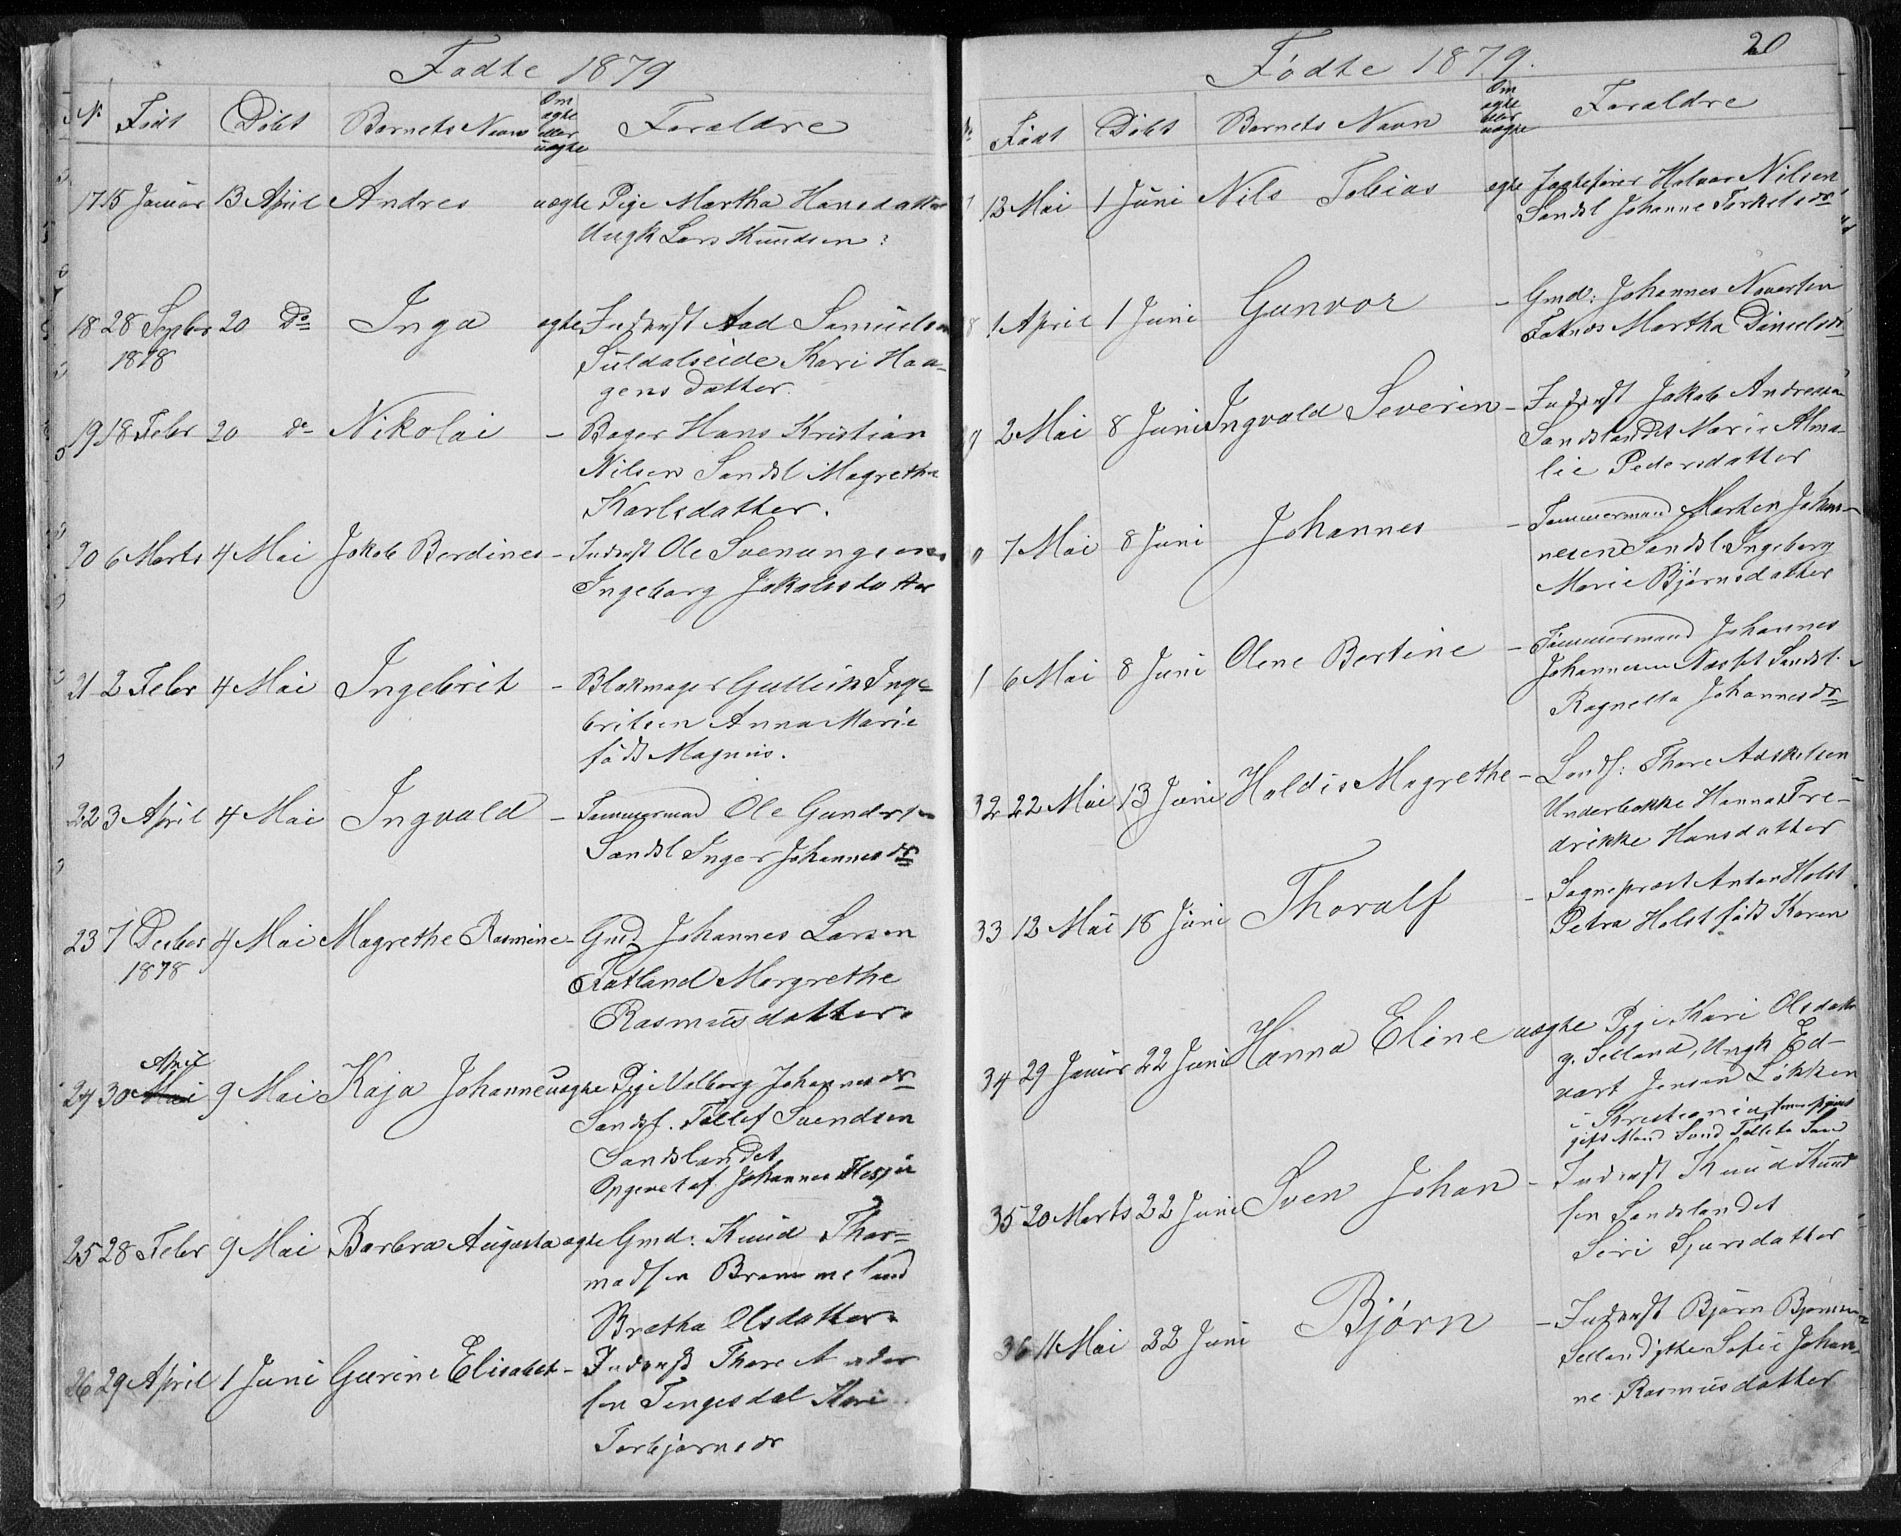 Fødte 1879
No Født Døbt Barnets Navn Om ægte eller uægte Forældre
17 15 Januar 13 April Andres uægte Pige Martha Hansdatter
Ungk Lars Knudsen
18 28 Septbr 20 Do Inga ægte Inderst Aad Samuelsen
1878 Suldalseide Kari Haa-
gensdatter
19 18 Febr 20 do Nikolai - Bager Hans Kristian
Nilsen Sandsl Magrethe
Karlsdatter.
20 6 Marts 4 Mai Jakob Berdines - Inderst Ole Svenungsen
Ingeborg Jakobsdatter
21 2 Febr 4 Mai Ingebrit - Blokmager Gulleik Inge-
britsen Anna Marie
født Magnus.
22 3 April 4 Mai Ingvald - Tømmermand Ole Gundersen
Sandsl Inger Johannesdr
23 7 Decbr 4 Mai Magrethe Rasmine - Gmd. Johannes Larsen
1878 Fatland Margrethe
Rasmusdatter.
April
24 30 Mai 9 Mai Kaja Johanne uægte Pige Valborg Johannesdr
Sandsl. Tollef Svendsen
Sandslandet
Opgevet af Johannes
25 28 Febr 9 Mai Barbra Augusta ægte Gmd: Knud Thor-
madsen Brommeland
Bretha Olsdatter.
26 29 April 1 Juni Gurine Elisabet - Inderst Thore Ander
sen Tengesdal Kari
Torbjørnsdr
20
Fødte 1879.
Født Døbt Barnets Navn Om ægte eller uægte Forældre
7 12 Mai 1 Juni Nils Tobias ægte Jagtefører Halvor Nilsen
Sandsl Johanne Torkelsdr
8 1 April 1 Juni Gunvor - Gmd: Johannes
Martha Danielsdr
9 2 Mai 8 Juni Ingvald Severin - Inderst Jakob Andreassen
Sandslandet Marie Alma-
lie Pedersdatter
0 7 Mai 8 Juni Johannes - Tømmermand Morten Johan-
nesen Sandsl Ingeborg
Marie Bjørnsdatter
1 6 Mai 8 Juni Olene Bertine - Tømmermand Johannes
Johannesen Næsset Sandsl.
Ragnella Johannesdr
32 22 Mai 13 Juni Haldis Magrethe - Lensm: Thore Adskelsen
Underbakke Hanna Fre-
drikke Hansdatter
33 12 Mai 18 Juni Thoralf - Sognepræst Anton Holst
Petra Holst født Koren
34 29 Januar 22 Juni Hanna Eline uægte Pige Kari Olsdatr
g. Selland, Ungk Ed-
vart Jensen Løkken
i Kristiania
gift Mand Sand
35 20 Marts 22 Juni Sven Johan - Inderst Knud Knud
sen Sandslandet
Siri Sjursdatter
36 11 Mai 22 Juni Bjørn - Inderst Bjørn Bjørnsen
Sofie Johan-
ne Rasmusdatter